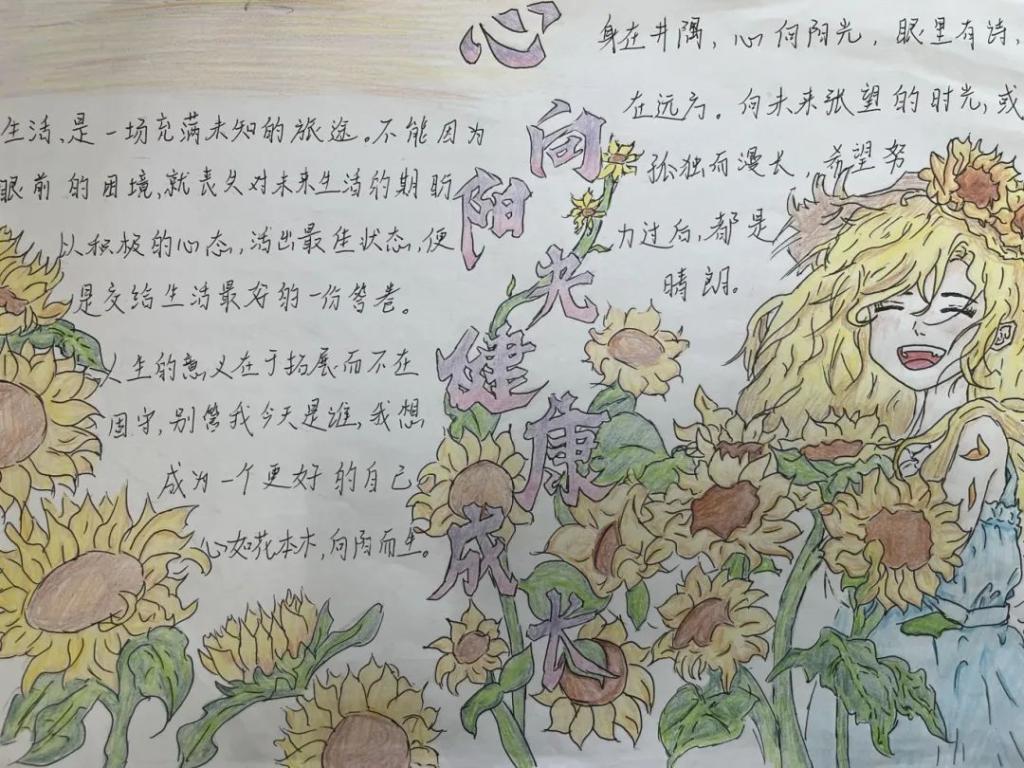 心向阳光健康成长
生活、是一场充满未知的旅途。不能因为
眼前的困境,就丧失对未来生活的期盼
以积极的心态,活出最佳状态,便
是交给生活最好的一份答卷。
人生的意义在于拓展而不在
固守,别管我今天是谁,我想
成为一个更好的自己
心如花本木,向阳而生。
身在井隅,心向阳光,眼里有诗,
在远方。向未来张望的时光,或
孤独而漫长,希望努
力过后,都是
晴朗。